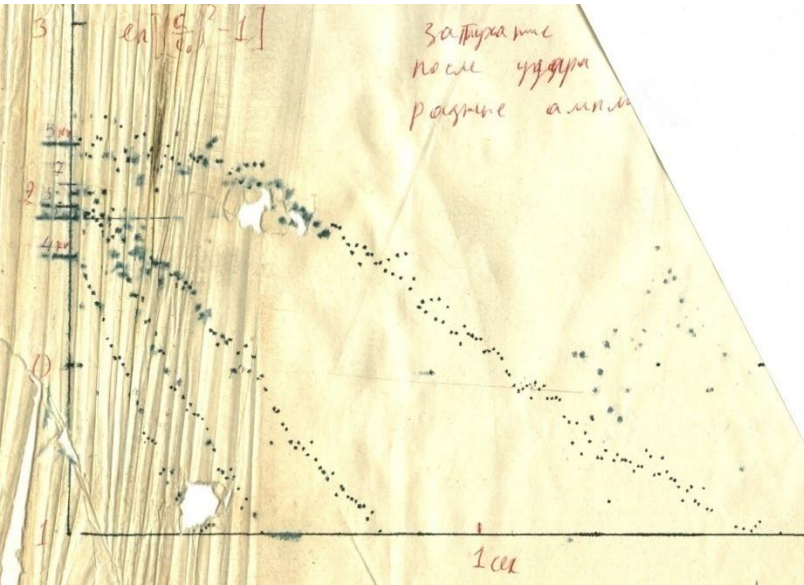 3
ln[(d/d₀)² - 1]
затухание
после удара
разные ампл
7
2
0
1
1 сек